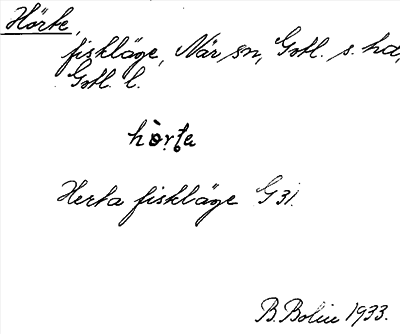 Hörte,
fiskläge, När sn, Gotl. s. hd,
Gotl. l.
hò̤rta
Herta fiskläge G 31.
B. Bolin 1933.